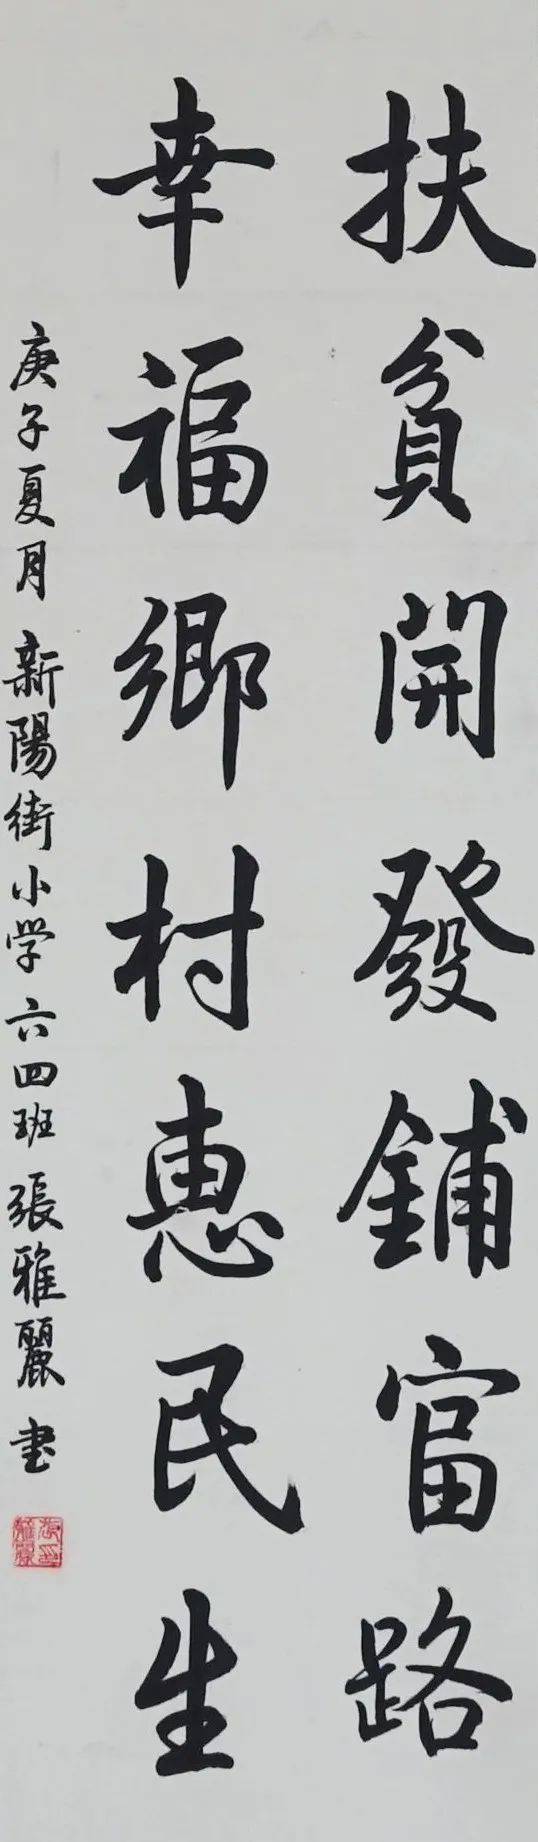 扶貧開發鋪富路
幸福鄉村惠民生
庚子夏月新陽街小学六四班張雅麗书